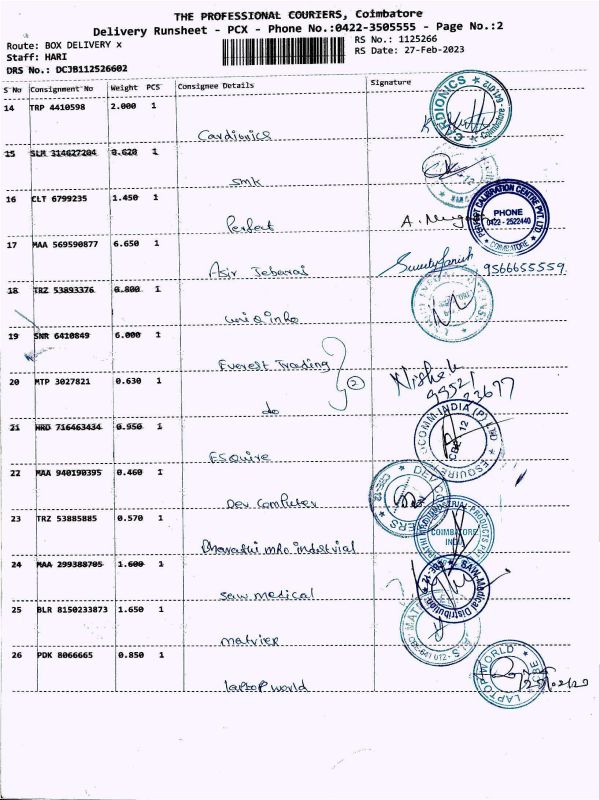 THE PROFESSIONAL COURIERS, Coimbatore
Delivery Runsheet - PCX - Phone No.:0422-3505555 - Page No.:2
Route: BOX DELIVERY x
RS No.: 1125266
Staff: HARI
RS Date: 27-Feb-2023
DRS No.: DCJB112526602
S No Consignment No Weight PCS Consignee Details Signature
14 TRP 4410598 2.000 1
Cardionics
CARDIONICS
15 SLM 314627204 0.620 1
SMK
16 CLT 6799235 1.450 1
Perfect
PERFECT CALIBRATION CENTRE PVT LTD.
PHONE
0422 - 2522440
COIMBATORE
17 MAA 569590877 6.650 1
Asir Jebaraj
9566655559
18 TRZ 53893376 0.800 1
19 SNR 6410849 6.000 1
Everest Trading
2
20 MTP 3027821 0.630 1
do
21 HRD 716463434 0.950 1
Esquire
22 MAA 940190395 0.460 1
Dev Computer
23 TRZ 53885885 0.570 1
COIMBATORE
INDIA
24 MAA 299388705 1.600 1
Saw medical
SAW Medical Distribution
25 BLR 8150233873 1.650 1
26 PDK 8066665 0.850 1
laptop world
LAPTOP WORLD
CBE